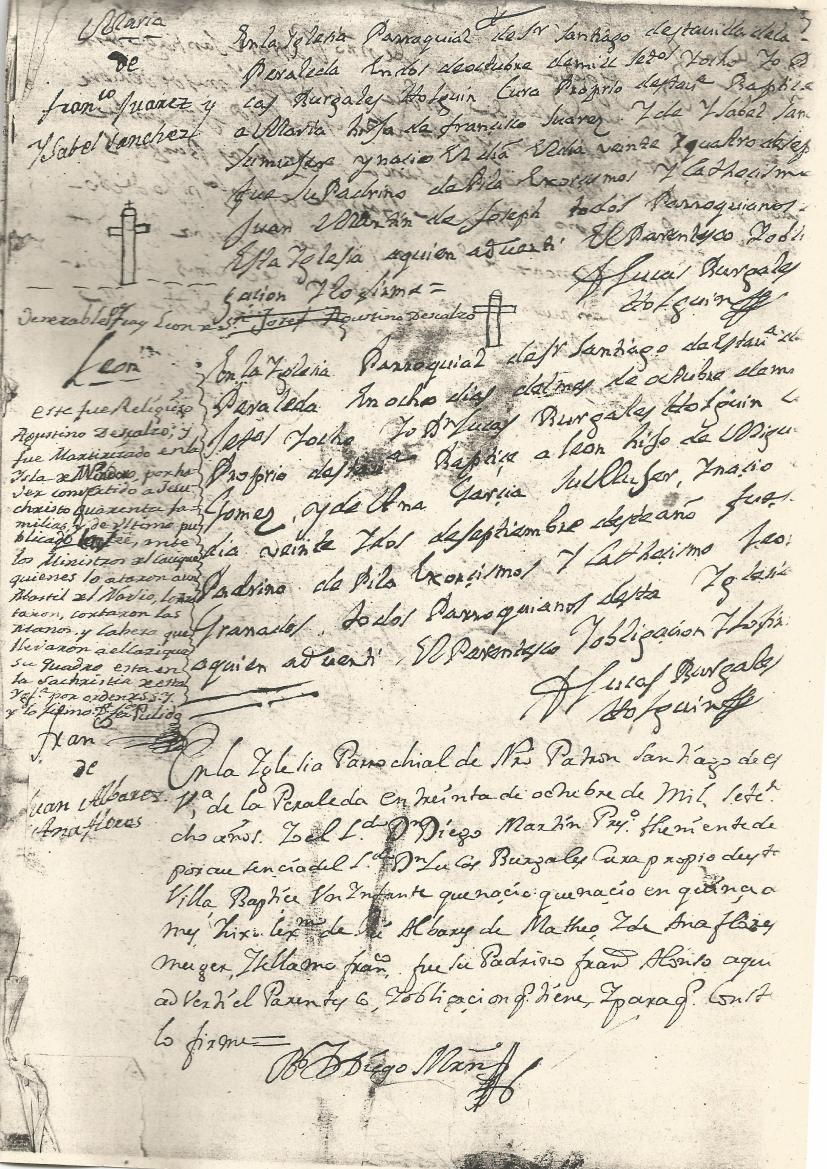 Maria
de
Franco Juarez y
Ysabel Sanchez
En la Iglesia Parroquial de Sr Santiago desta villa de la
Peraleda En dos de octubre de mil setos Yocho Yo D
cas Burgales Holguin Cura Proprio desta Va Baptice
a Maria hija de francisco Suarez Y de Ysabel San
su mujere y nacio El dia El dia veinte Y quatro de sep
fue su Padrino de Pila Exorcismos Y Cathecismo
Juan Martin de Joseph todos Parroquianos
Esta Iglesia a quien adverti El Parentesco Yobli
gacion Y lo firme =
Lucas Burgales
Holguin
Venerable Fray Leon de Sn Josef Agustino Descalzo
Leon
este fue Religioso
Agustino Descalzo, y
fue Martirizado en la
Ysla de Mindoro, por ha
ver combatido a Jesu
christo quarenta fa
milias, y de ultimo pu
blicado la fee, ante
los Ministros del cacique
quienes lo ataron a un
Mastil del Navio,
taron, cortaron las
Manos, y Cabeza que
llevaron a el cazique
su quadro esta en
la Sachristia de esta
Yglª por orden de S.S. y
y lo firmo Pulido
En la Yglesia Parroquial de Sr Santiago de Esta va de
Peraleda En ocho dias del mes de octubre de mi
setos Yocho Yo Dn Lucas Burgales Holguin C
Proprio desta va Baptice a Leon hijo de Migu
Gomez, y de Ana Garcia su Muger, Ynacio
dia veinte Y dos de septiembre deste año fue s
Padrino de Pila Exorcismos Y Cathecismo
Granados, todos Parroquianos desta Iglesia
a quien adverti, El Parentesco Yobligacion Ylo fir
Lucas Burgales
Holguin
fran
de
Juan Albarez
Ana flores
En la Yglesia Parrochial de Nro Patron Santiago de es
Va de la Peraleda en treinta de octubre de Mil Setet
cho años. Yo el Ldo Dn Diego Martin Presº theniente de
por ausencia del Ldo Dn Lucas Burgales Cura propio dest
Villa Baptice Un Infante que nacio que nacio en quince
mes, hixo lexmo de Ju Albares de Matheo, Y de Ana flores
muger, Y llamo franco fue su Padrino franco Alonso aqui
adverti el Parentesco, Yobligacion q. tiene, Y para q. const
lo firme=
Dn Diego Mrn